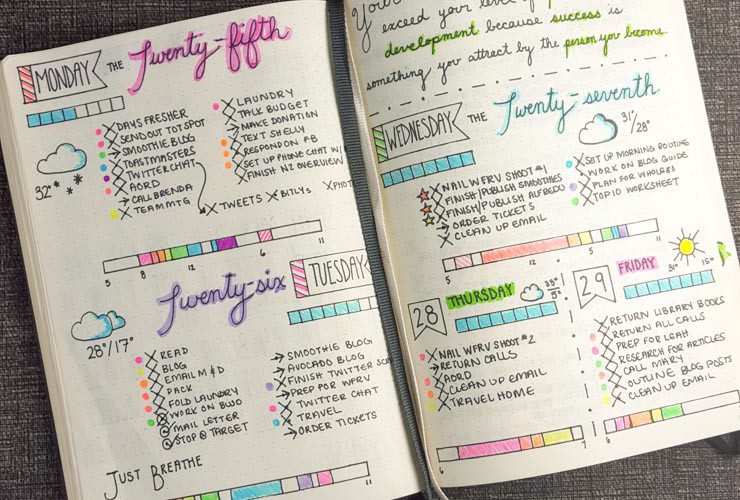 MONDAY THE Twenty-fifth
DAYS FRESHER
SENDOUT TOTSPOT
SMOOTHIE BLOG
TOASTMASTERS
TWITTERCHAT
AORD
CALL BRENDA
TEAM MTG
LAUNDRY
TALK BUDGET
MAKE DONATION
TEXT SHELLY
RESPOND ON FB
SET UP PHONE CHAT W/
FINISH NZ OVERVIEW
TWEETS BITLYS PHOT
32°
5 8 12 6 11
Twenty-six TUESDAY
28°/17°
READ
BLOG
EMAIL M & D
PACK
FOLD LAUNDRY
WORK ON BWO
MAIL LETTER
STOP @ TARGET
SMOOTHIE BLOG
AVOCADO BLOG
FINISH TWITTER
PREP FOR WFRV
TWITTER CHAT
TRAVEL
ORDER TICKETS
JUST BREATHE
11
exceed your level of
development because success is
something you attract by the person you become.
WEDNESDAY THE Twenty-seventh
31°/28°
NAIL WFRV SHOOT #1
FINISH/PUBLISH SMOOTHIES
FINISH/PUBLISH ALFREDO
ORDER TICKETS
CLEAN UP EMAIL
SET UP MORNING ROUTINE
WORK ON BLOG GUIDE
PLAN FOR WHOLE85
TOP 10 WORKSHEET
5 8 12 6 11
28 THURSDAY
35°/5°
NAIL WFRV SHOOT #2
RETURN CALLS
AORD
CLEAN UP EMAIL
TRAVEL HOME
6 12 6 11
29 FRIDAY
31° 15°
RETURN LIBRARY BOOKS
RETURN ALL CALLS
PREP FOR LEAH
RESEARCH FOR ARTICLES
CALL MARY
OUTLINE BLOG POSTS
CLEAN UP EMAIL
6